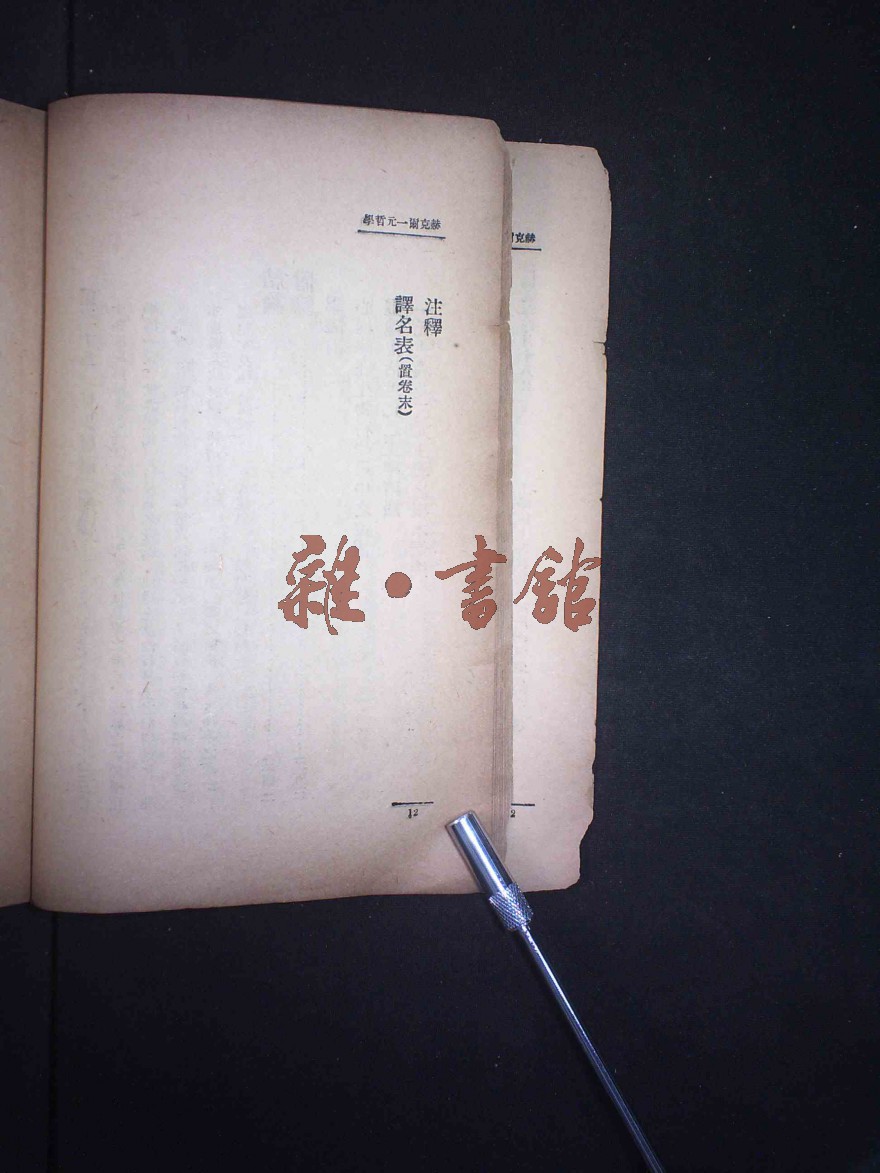 赫克爾一元哲學
注釋
譯名表(置卷末)
12
赫克爾
2
雜·書館